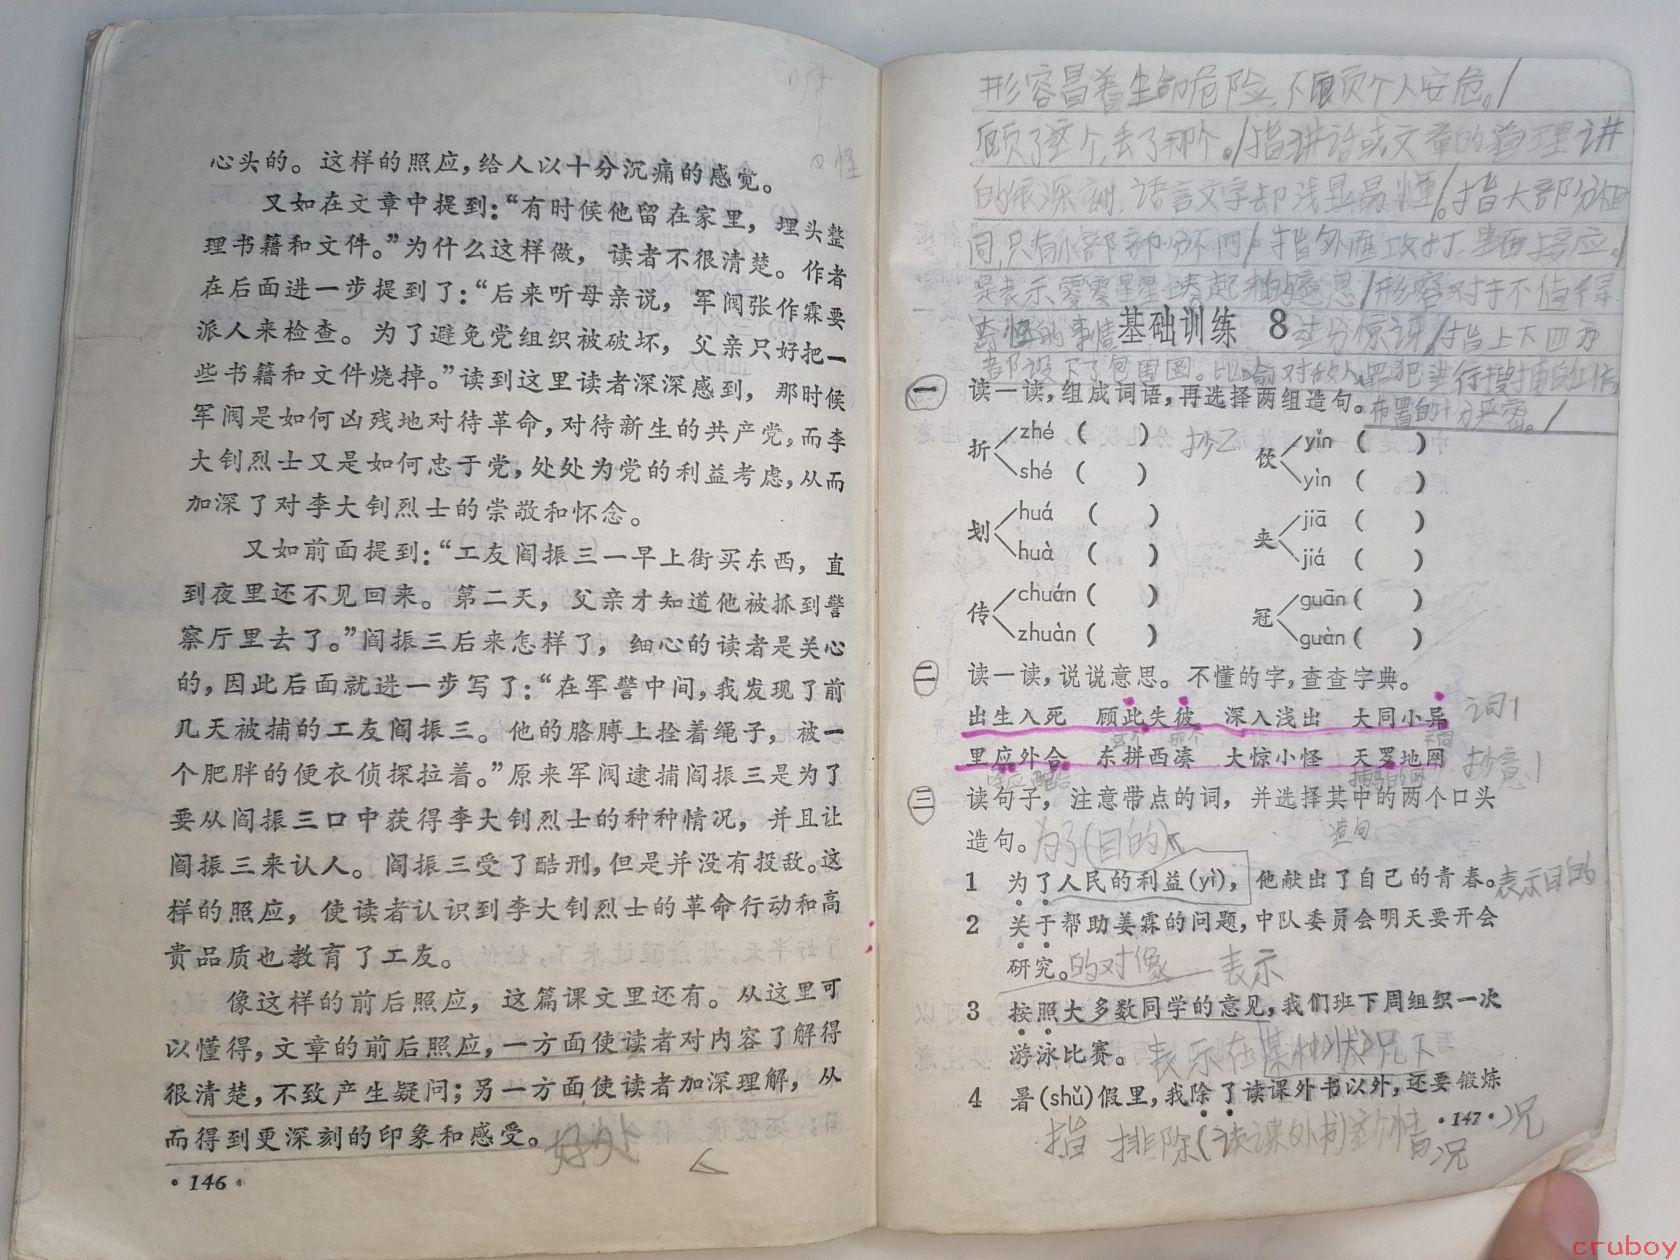 心头的。这样的照应，给人以十分沉痛的感觉。
又如在文章中提到：“有时候他留在家里，埋头整
理书籍和文件。”为什么这样做，读者不很清楚。作者
在后面进一步提到了：“后来听母亲说，军阀张作霖要
派人来检查。为了避免党组织被破坏，父亲只好把一
些书籍和文件烧掉。”读到这里读者深深感到，那时候
军阀是如何凶残地对待革命，对待新生的共产党，而李
大钊烈士又是如何忠于党，处处为党的利益考虑，从而
加深了对李大钊烈士的崇敬和怀念。
又如前面提到：“工友阎振三一早上街买东西，直
到夜里还不见回来。第二天，父亲才知道他被抓到警
察厅里去了。”阎振三后来怎样了，细心的读者是关心
的，因此后面就进一步写了：“在军警中间，我发现了前
几天被捕的工友阎振三。他的胳膊上拴着绳子，被一
个肥胖的便衣侦探拉着。”原来军阀逮捕阎振三是为了
要从阎振三口中获得李大钊烈士的种种情况，并且让
阎振三来认人。阎振三受了酷刑，但是并没有投敌。这
样的照应，使读者认识到李大钊烈士的革命行动和高
贵品质也教育了工友。
像这样的前后照应，这篇课文里还有。从这里可
以懂得，文章的前后照应，一方面使读者对内容了解得
很清楚，不致产生疑问；另一方面使读者加深理解，从
而得到更深刻的印象和感受。
好处
·146·
怪
形容冒着生命危险，不顾个人安危。/
顾了这个，丢了那个。/指讲话或文章的道理讲
的很深刻，语言文字却浅显易懂。/指大部分相
同，只有小部部分不同/指外面攻打，里面接应。/
是表示零零星星凑起来的意思/形容对于不值得
奇怪的事情过分惊讶/指上下四方
都设下了包围圈。比喻对敌人罪犯进行搜捕的
布置的十分严密。/
基础训练 8
一 读一读，组成词语，再选择两组造句。
折 zhé ( ) 饮 yǐn ( )
shé ( ) yìn ( )
划 huá ( ) 夹 jiā ( )
huà ( ) jiá ( )
传 chuán ( ) 冠 guān ( )
zhuàn ( ) guàn ( )
二 读一读，说说意思。不懂的字，查查字典。
出生入死 顾此失彼 深入浅出 大同小异 词1
里应外合 东拼西凑 大惊小怪 天罗地网 抄意1
三 读句子，注意带点的词，并选择其中的两个口头
造句。为了(目的)
造句
1 为了人民的利益(yì)，他献出了自己的青春。表示目的
2 关于帮助姜霖的问题，中队委员会明天要开会
研究。的对像 表示
3 按照大多数同学的意见，我们班下周组织一次
游泳比赛。表示在某种状况下
4 暑(shǔ)假里，我除了读课外书以外，还要锻炼
·147·
指 排除(读课外书)这个情况
cruboy